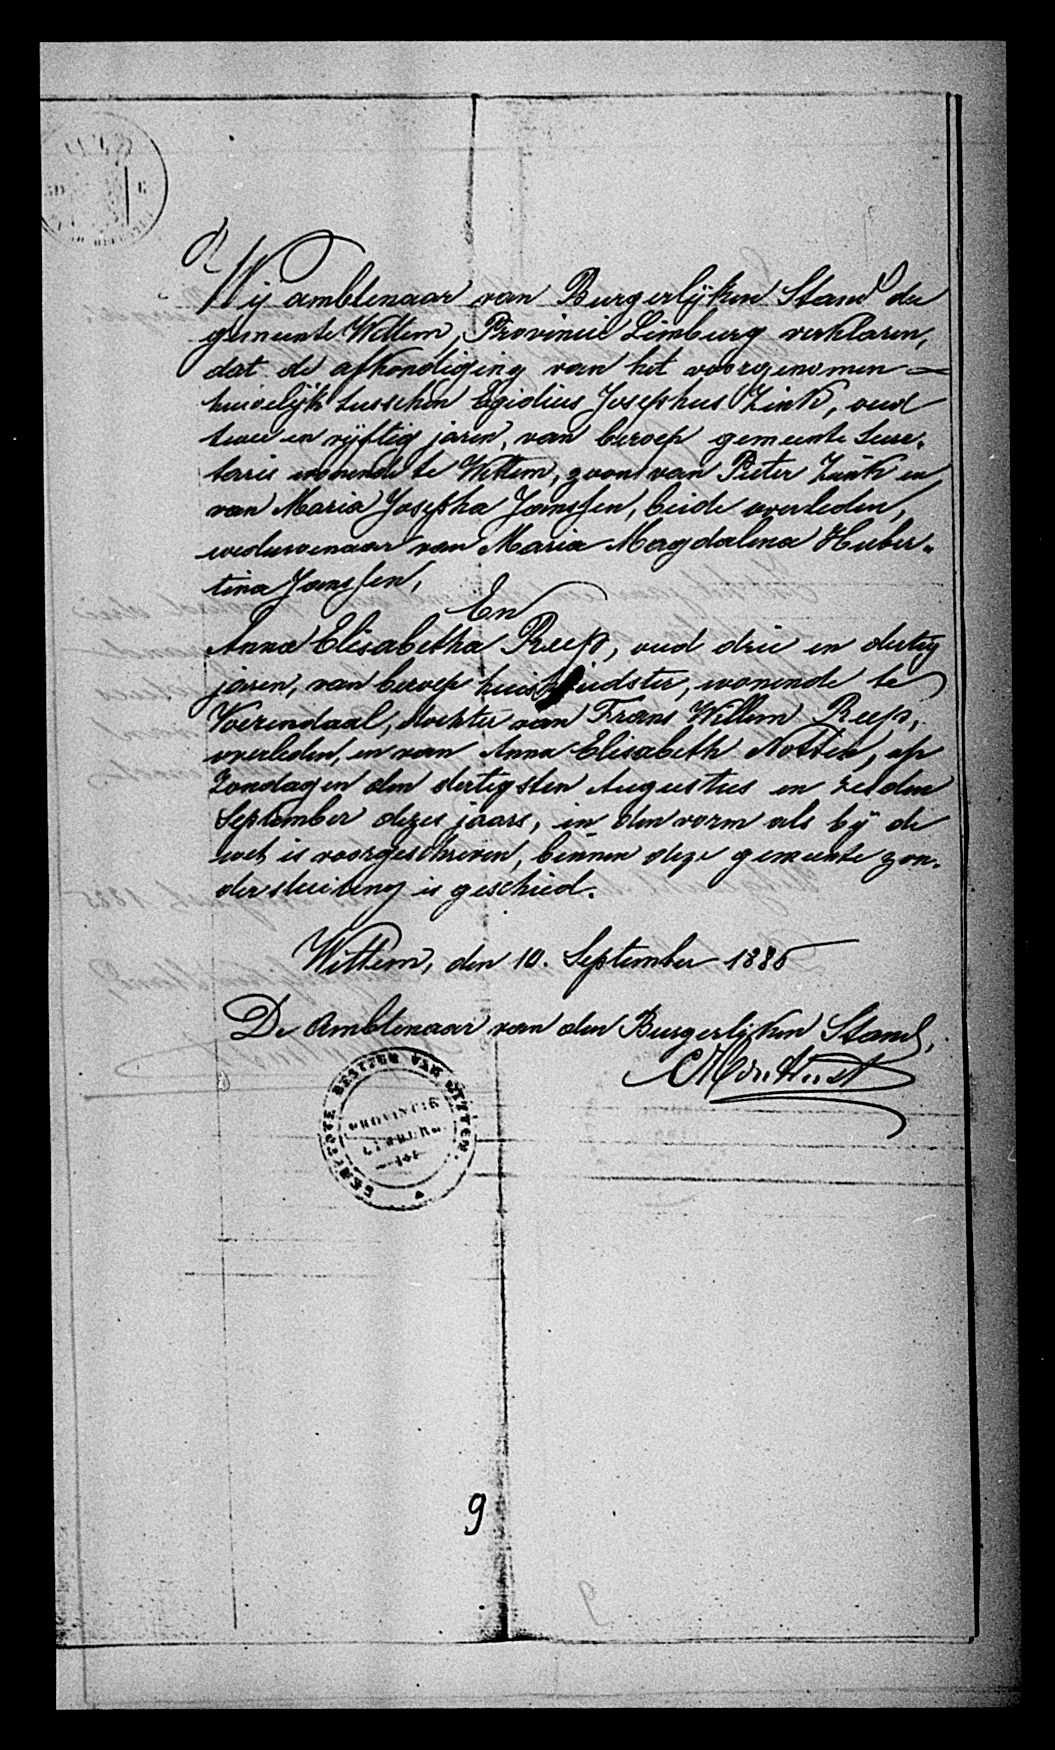 Wij ambtenaar van Burgerlijken Stand der
gemeente Wittem, Provincie Limburg verklaren,
dat de afkondiging van het voorgenomen
huwelijk tusschen Egidius Josephus Zink, oud
twee en vijftig jaren, van beroep gemeente Secre-
taris wonende te Wittem, zoon van Pieter Zink en
van Maria Josepha Janssen, beide overleden,
weduwenaar van Maria Magdalena Huber-
tina Janssen,
En
Anna Elisabetha Reep, oud drie en dertig
jaren, van beroep huishoudster, wonende te
Voerendaal, dochter van Frans Willem Reep,
overleden, en van Anna Elisabeth Notten, op
Zondagen den dertigsten Augustus en zesden
September dezes jaars, in den vorm als bij de
wet is voorgeschreven, binnen deze gemeente zon-
der stuiting is geschied.
Wittem, den 10. September 1885
De Ambtenaar van den Burgerlijken Stand,
GEMEENTE BESTUUR VAN WITTEM.
PROVINCIE
LIMBURG
9